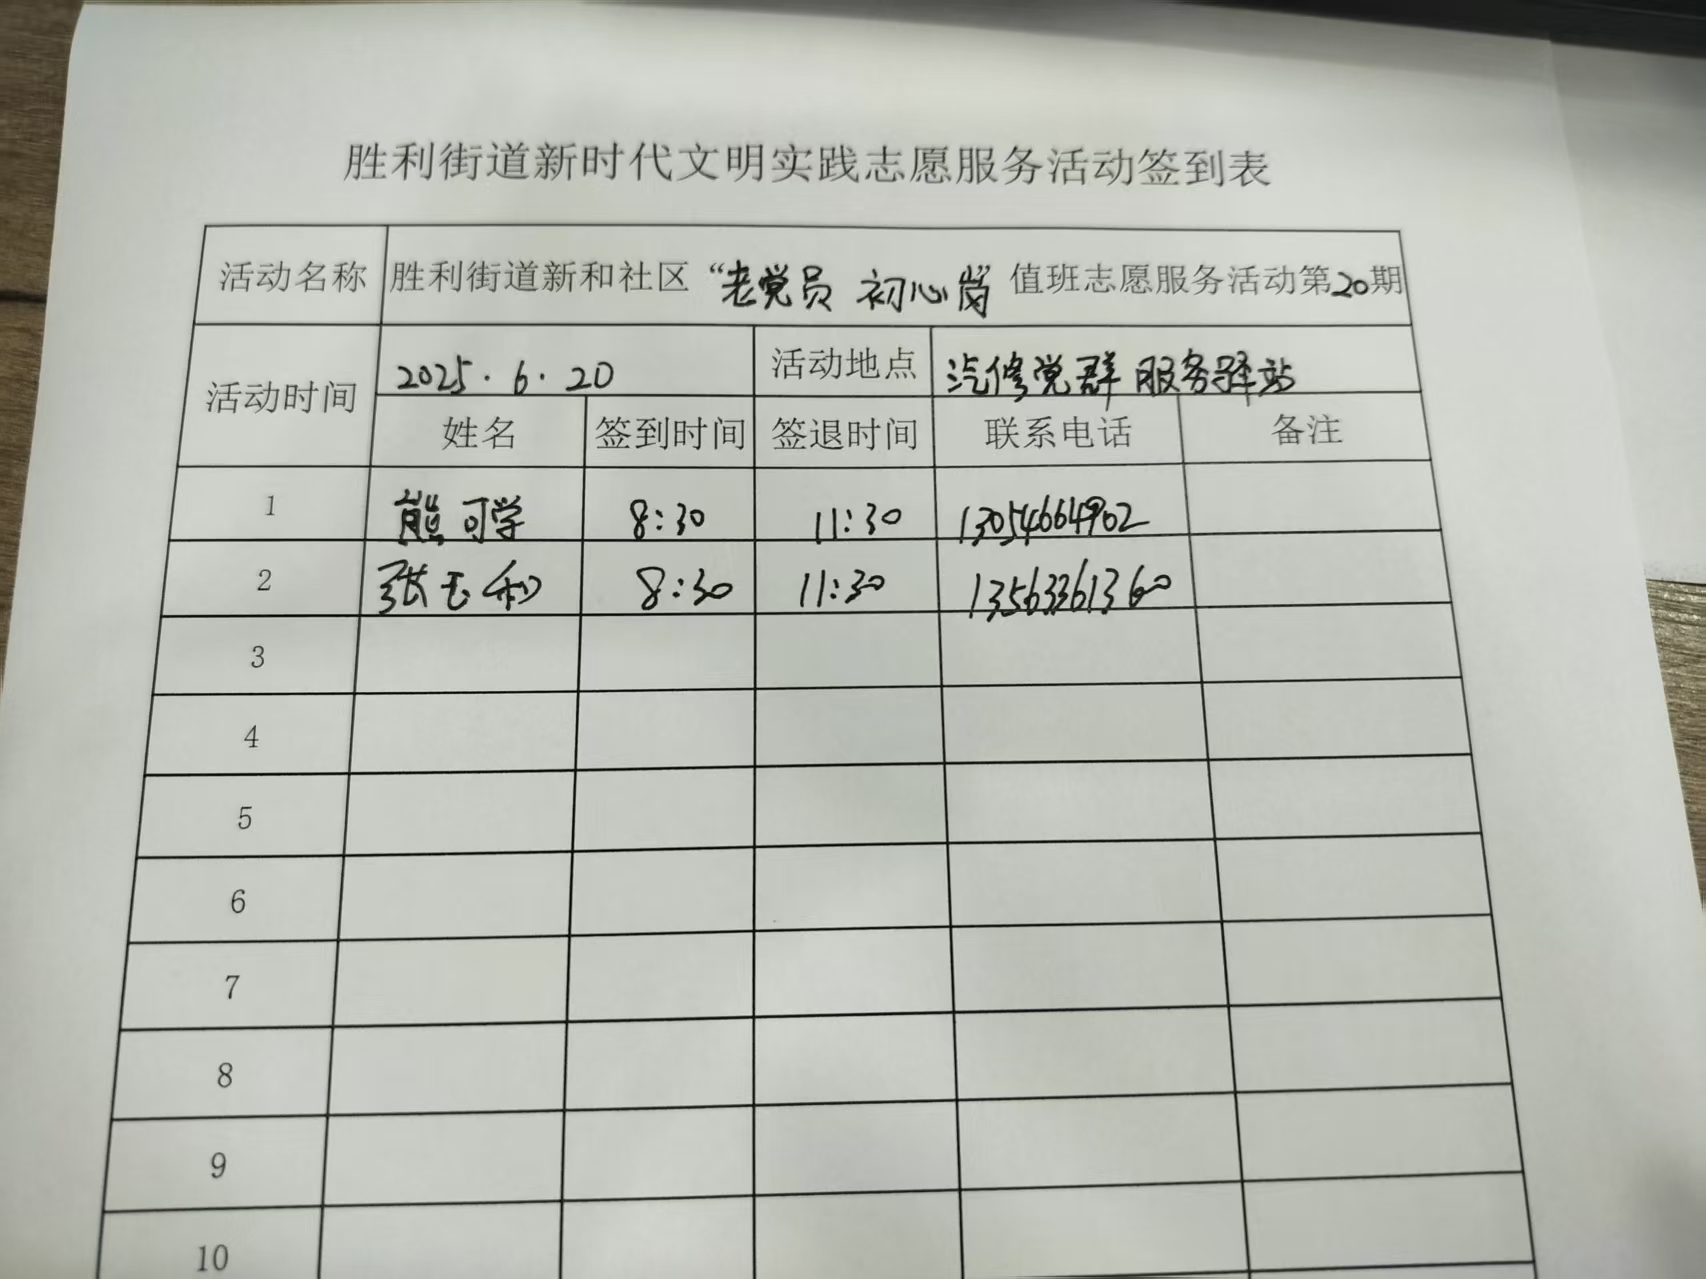 胜利街道新时代文明实践志愿服务活动签到表
活动名称 胜利街道新和社区“老党员 初心岗”值班志愿服务活动第20期
活动时间 2025.6.20 活动地点 汽修党群服务驿站
姓名 签到时间 签退时间 联系电话 备注
1 熊可学 8:30 11:30 13054664902
2 张玉和 8:30 11:30 13563361360
3
4
5
6
7
8
9
10